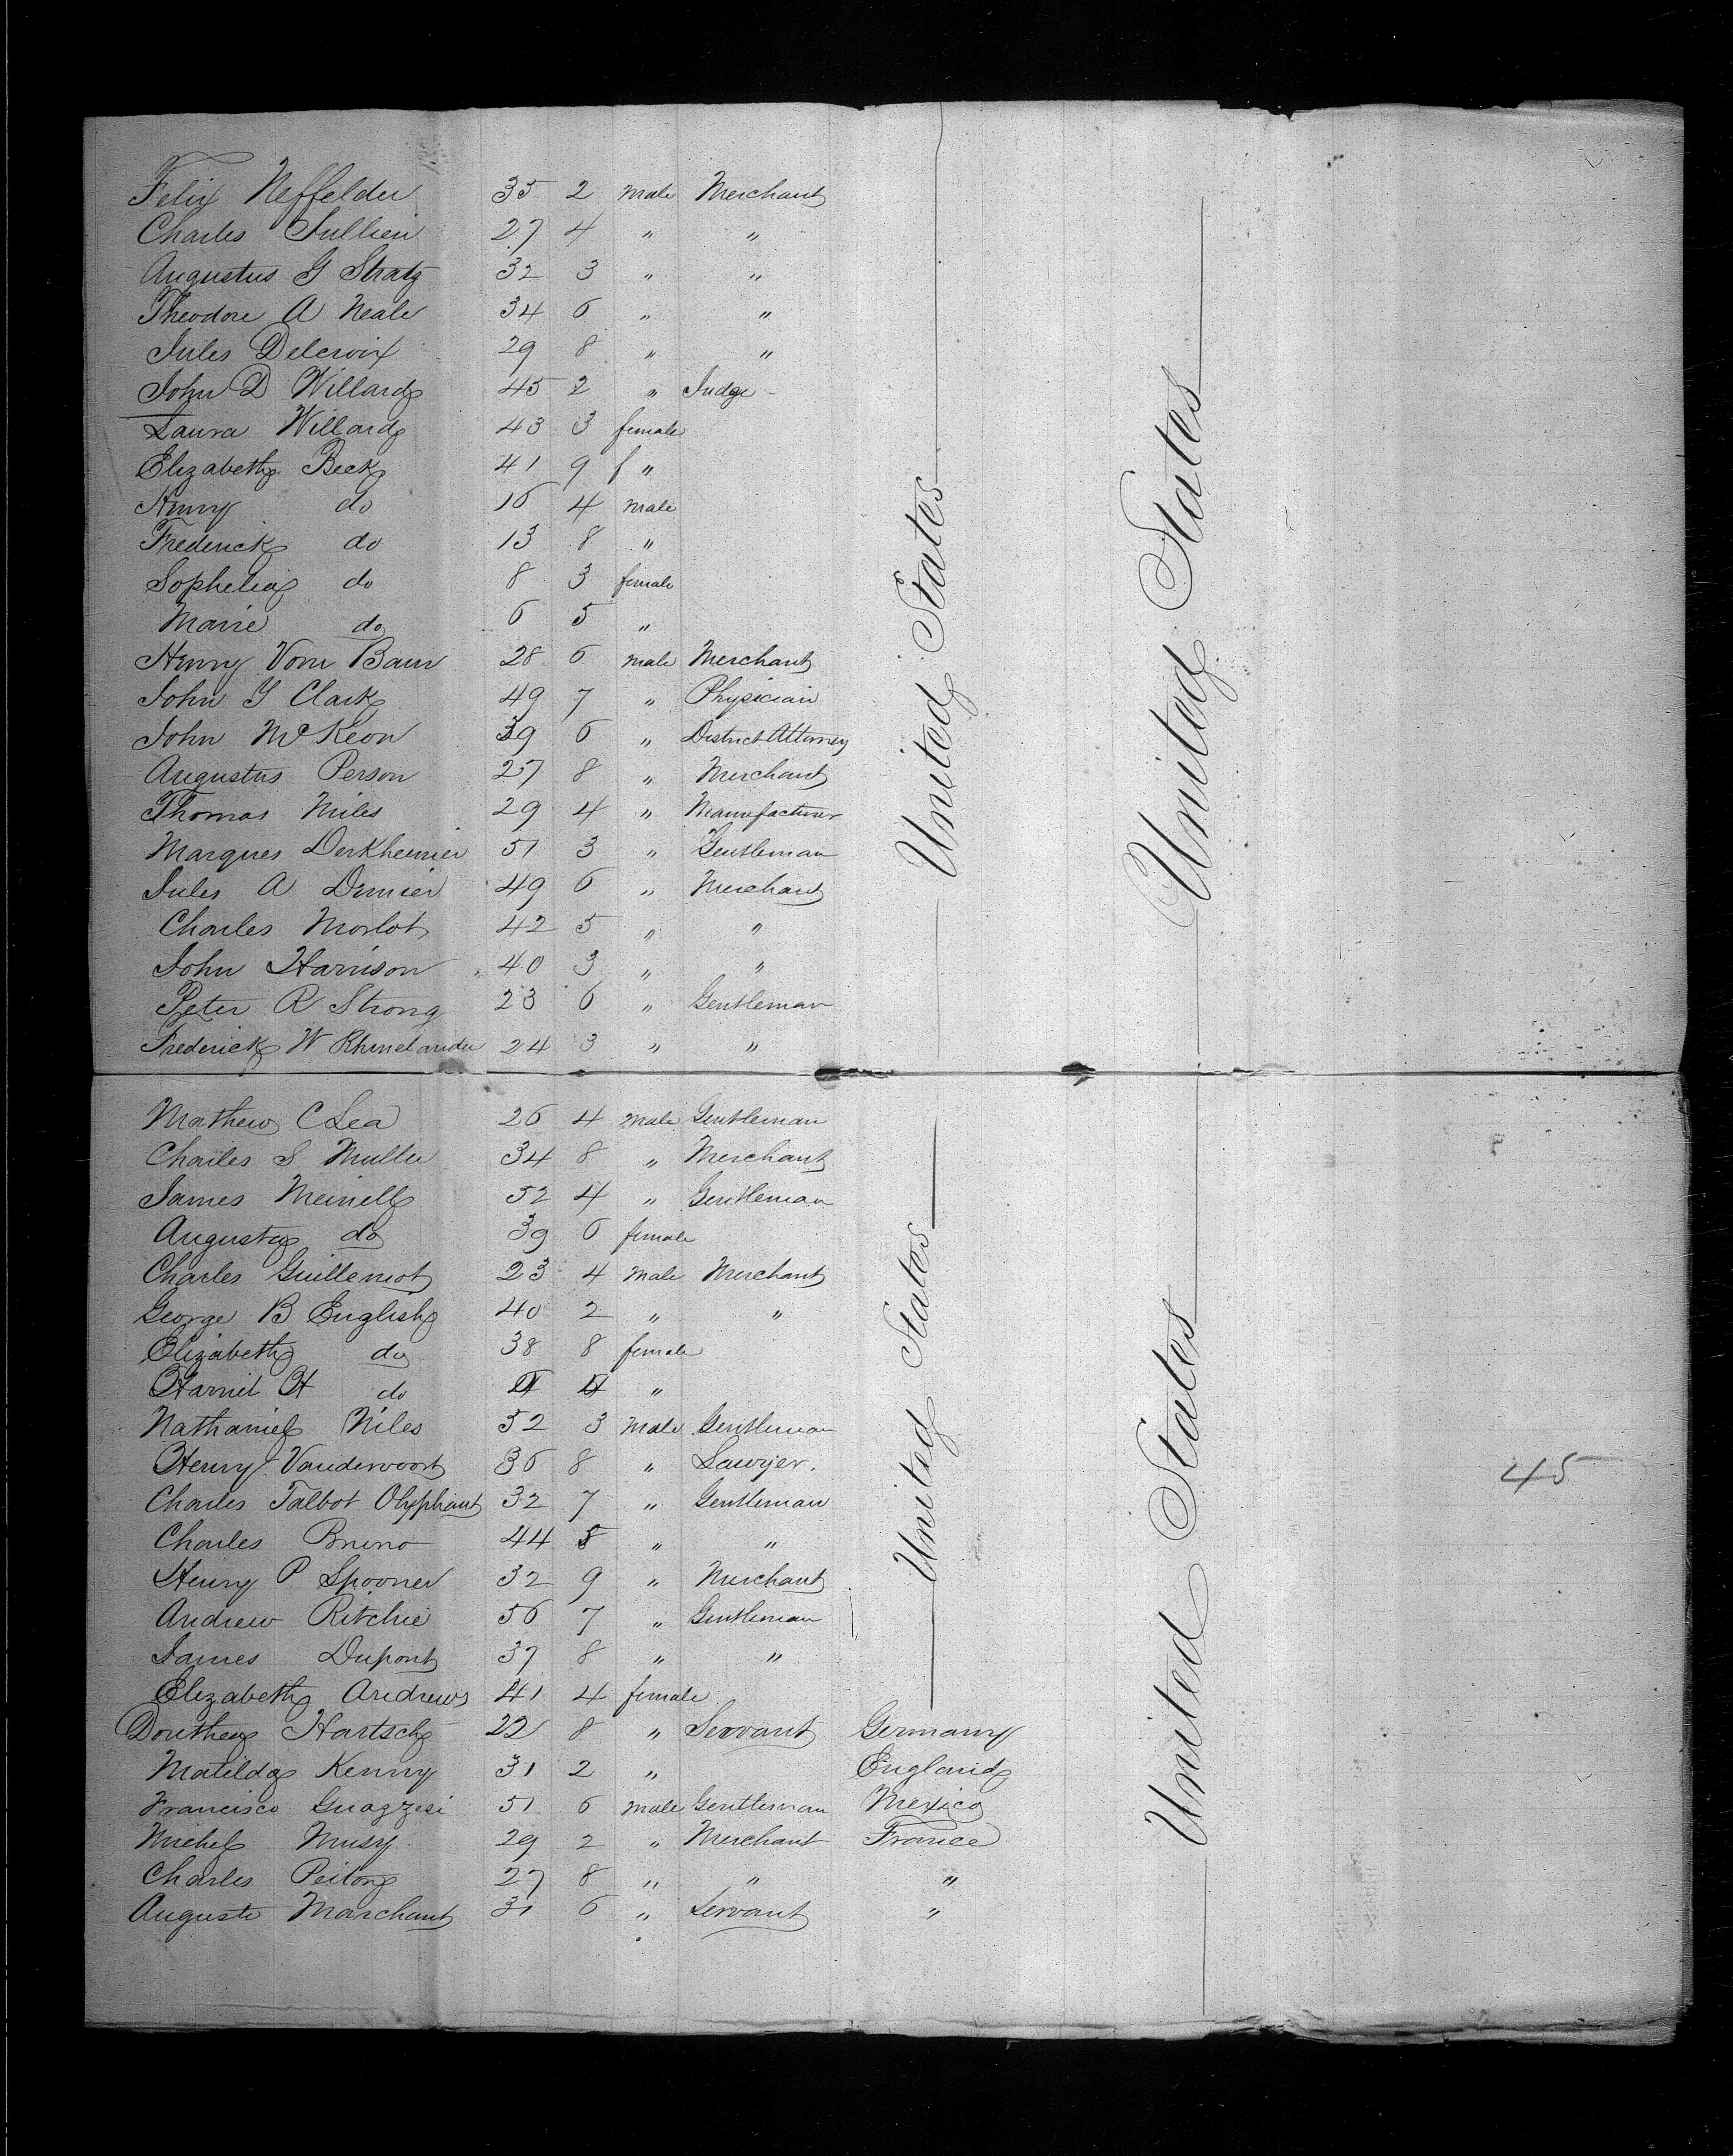 Felix Neffelder 35 2 male Merchant
Charles Jullien 27 4 " "
Augustus G Stratz 32 3 " "
Theodore A Neale 34 6 " "
Jules Delcroix 29 8 " "
John D Willard 45 2 " Judge
Laura Willard 43 3 female
Elizabeth Beck 41 9 f "
Henry do 16 4 male
Frederick do 13 8 "
Sophelia do 8 3 female
Marie do 6 5 "
Henry Vom Baur 28 6 male Merchant
John G Clark 49 7 " Physician
John McKeon 39 6 " District Attorney
Augustus Person 27 8 " Merchant
Thomas Niles 29 4 " Manufacturer
Marques Derkheimer 51 3 " Gentleman
Jules A Dimier 49 6 " Merchant
Charles Morlot 42 5 " "
John Harrison 40 3 " "
Peter R Strong 23 6 " Gentleman
Frederick W Rhinelander 24 3 " "
United States
United States
Mathew C Lea 26 4 male Gentleman
Charles S Muller 34 8 " Merchant
James Meinell 52 4 " Gentleman
Augusta do 39 6 female
Charles Guillemot 23 4 male Merchant
George B English 40 2 " "
Elizabeth do 38 8 female
Harriet H do "
Nathaniel Niles 52 3 male Gentleman
Henry Vandervoort 36 8 " Lawyer.
Charles Talbot Olyphant 32 7 " Gentleman
Charles Bruno 44 5 " "
Henry P Spooner 32 9 " Merchant
Andrew Ritchie 56 7 " Gentleman
James Dupont 37 8 " "
Elizabeth Andrews 41 4 female
Dorothea Hartsch 22 8 " Servant Germany
Matilda Kenny 31 2 " England
Francisco Guazzesi 51 6 male Gentleman Mexico
Michel Musy 29 2 " Merchant France
Charles Peitong 27 8 " " "
Auguste Marchant 31 6 " Servant "
United States
United States
45